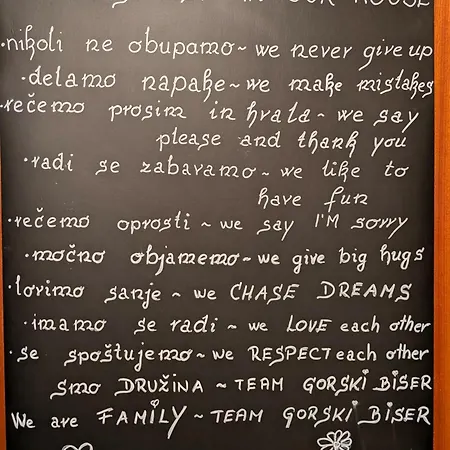 IN OUR HOUSE
·nikoli ne obupamo ~ we never give up
·delamo napake ~ we make mistakes
·rečemo prosim in hvala ~ we say
please and thank you
·radi se zabavamo ~ we like to
have fun
·rečemo oprosti ~ we say I'M sorry
·močno objamemo ~ we give big hugs
·lovimo sanje ~ we CHASE DREAMS
·imamo se radi ~ we LOVE each other
·se spoštujemo ~ we RESPECT each other
smo DRUŽINA ~ TEAM GORSKI BISER
We are FAMILY ~ TEAM GORSKI BISER